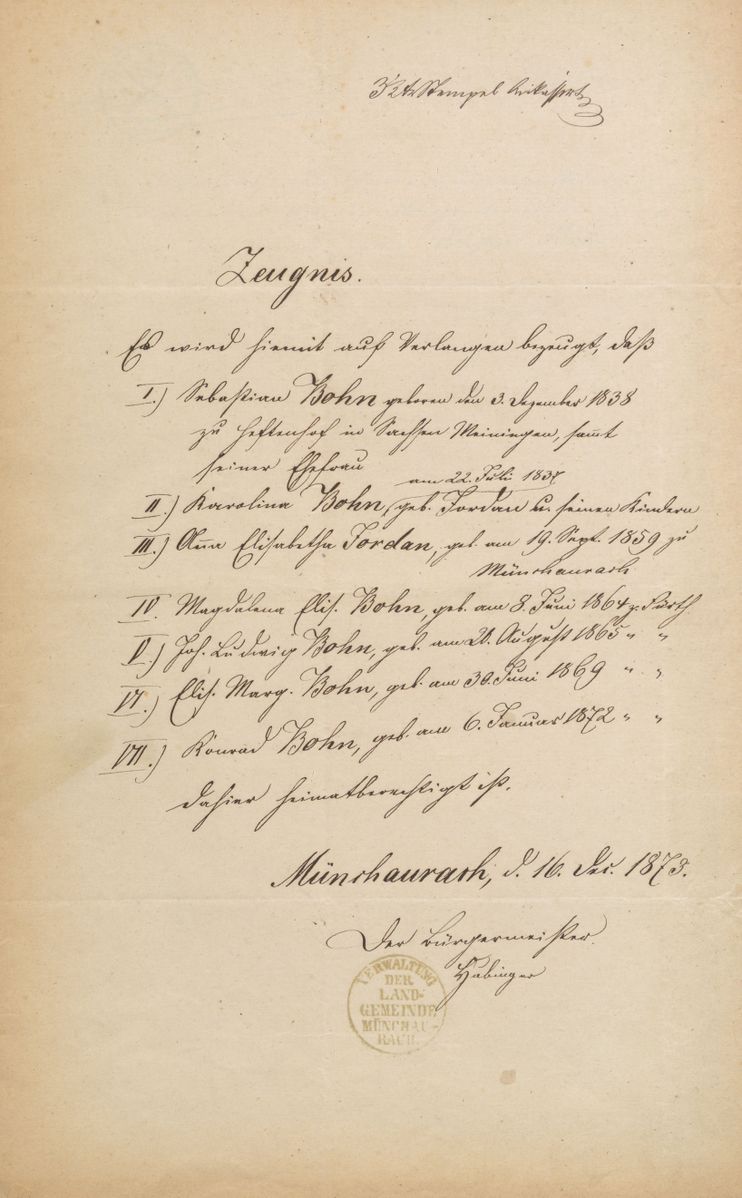 3 ½ kr Stempel
Zeugnis.
Es wird hiemit auf Verlangen bezeugt, daß
I.) Sebastian Bohn geboren den 3. Dezember 1838
zu Heftenhof in Sachsen Meiningen, sammt
seiner Ehefrau
am 22. Juli 1837
II.) Karolina Bohn, geb. Jordan u. seinen Kindern
III.) Anna Elisabetha Jordan, geb. am 19. Sept. 1859 zu
Münchaurach
IV. Magdalena Elis. Bohn, geb. am 8. Juni 1864 z. Fürth
V.) Joh. Ludwig Bohn, geb. am 21. August 1865 " "
VI.) Elis. Marg. Bohn, geb. am 30. Juni 1869 " "
VII.) Konrad Bohn, geb. am 6. Januar 1872 " "
dahier heimatberechtigt ist.
Münchaurach, d. 16. Dez. 1873.
Der Bürgermeister.
Hubinger
VERWALTUNG
DER
LAND-
GEMEINDE
MÜNCHAU-
RACH.